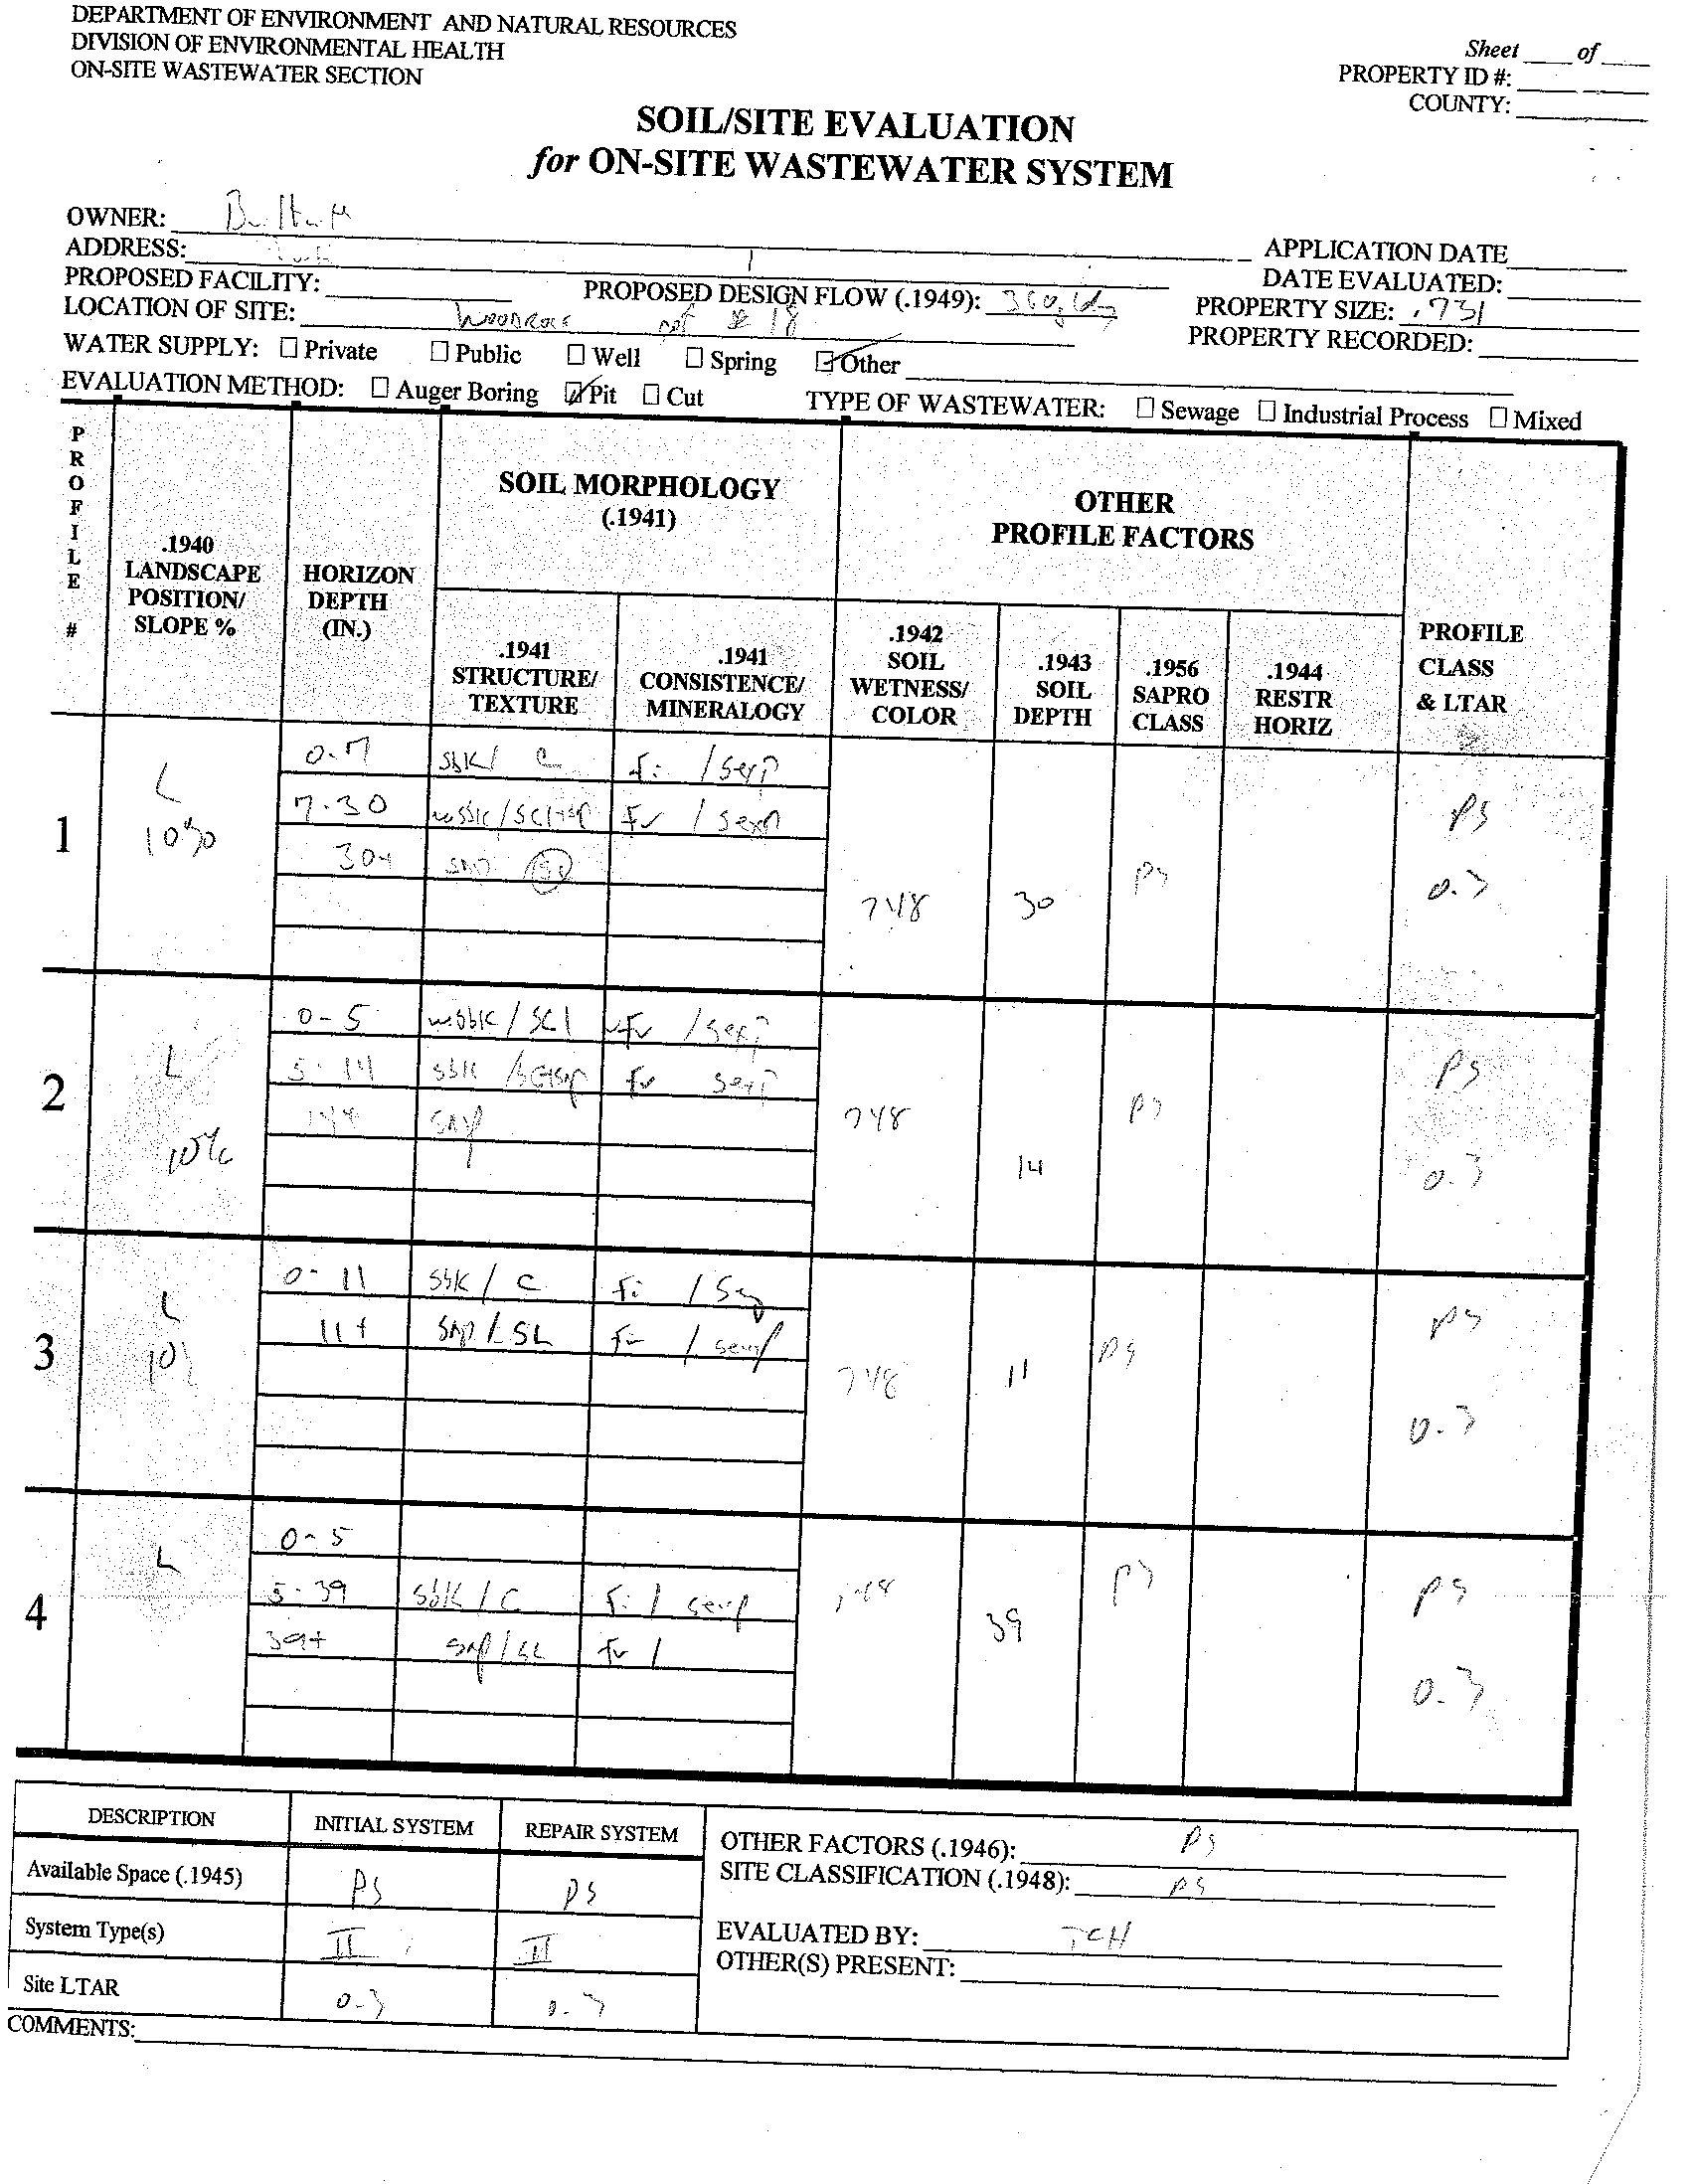 DEPARTMENT OF ENVIRONMENT AND NATURAL RESOURCES
DIVISION OF ENVIRONMENTAL HEALTH
ON-SITE WASTEWATER SECTION
Sheet ____ of ____
PROPERTY ID #:
COUNTY:
SOIL/SITE EVALUATION
for ON-SITE WASTEWATER SYSTEM
OWNER:
ADDRESS:
APPLICATION DATE
PROPOSED FACILITY:
PROPOSED DESIGN FLOW (.1949): 360
DATE EVALUATED:
LOCATION OF SITE: 18
PROPERTY SIZE: .731
PROPERTY RECORDED:
WATER SUPPLY: ☐ Private ☐ Public ☐ Well ☐ Spring ☑ Other
EVALUATION METHOD: ☐ Auger Boring ☑ Pit ☐ Cut
TYPE OF WASTEWATER: ☐ Sewage ☐ Industrial Process ☐ Mixed
PROFILE #
.1940 LANDSCAPE POSITION/ SLOPE %
HORIZON DEPTH (IN.)
SOIL MORPHOLOGY (.1941)
OTHER PROFILE FACTORS
.1941 STRUCTURE/ TEXTURE
.1941 CONSISTENCE/ MINERALOGY
.1942 SOIL WETNESS/ COLOR
.1943 SOIL DEPTH
.1956 SAPRO CLASS
.1944 RESTR HORIZ
PROFILE CLASS & LTAR
1 L 10%
0-7 sbk/ C fi / sexp
7-30 fr / sexp
30+
>48 30 ps PS 0.3
2 L 10%
0-5 wsbk/SCl vfr /sexp
5-14 sbk fr sexp
14+ sap
>48 14 ps PS 0.3
3 L 10%
0-11 sbk / C fi
11+ sap / SL fr / sexp
>48 11 ps PS 0.3
4 L
0-5
5-39 sbk / C fi / sexp
39+ sap/SL fr /
>48 39 ps PS 0.3
DESCRIPTION INITIAL SYSTEM REPAIR SYSTEM
Available Space (.1945) PS PS
System Type(s) II II
Site LTAR 0.3 0.3
OTHER FACTORS (.1946): PS
SITE CLASSIFICATION (.1948): PS
EVALUATED BY: TCH
OTHER(S) PRESENT:
COMMENTS: